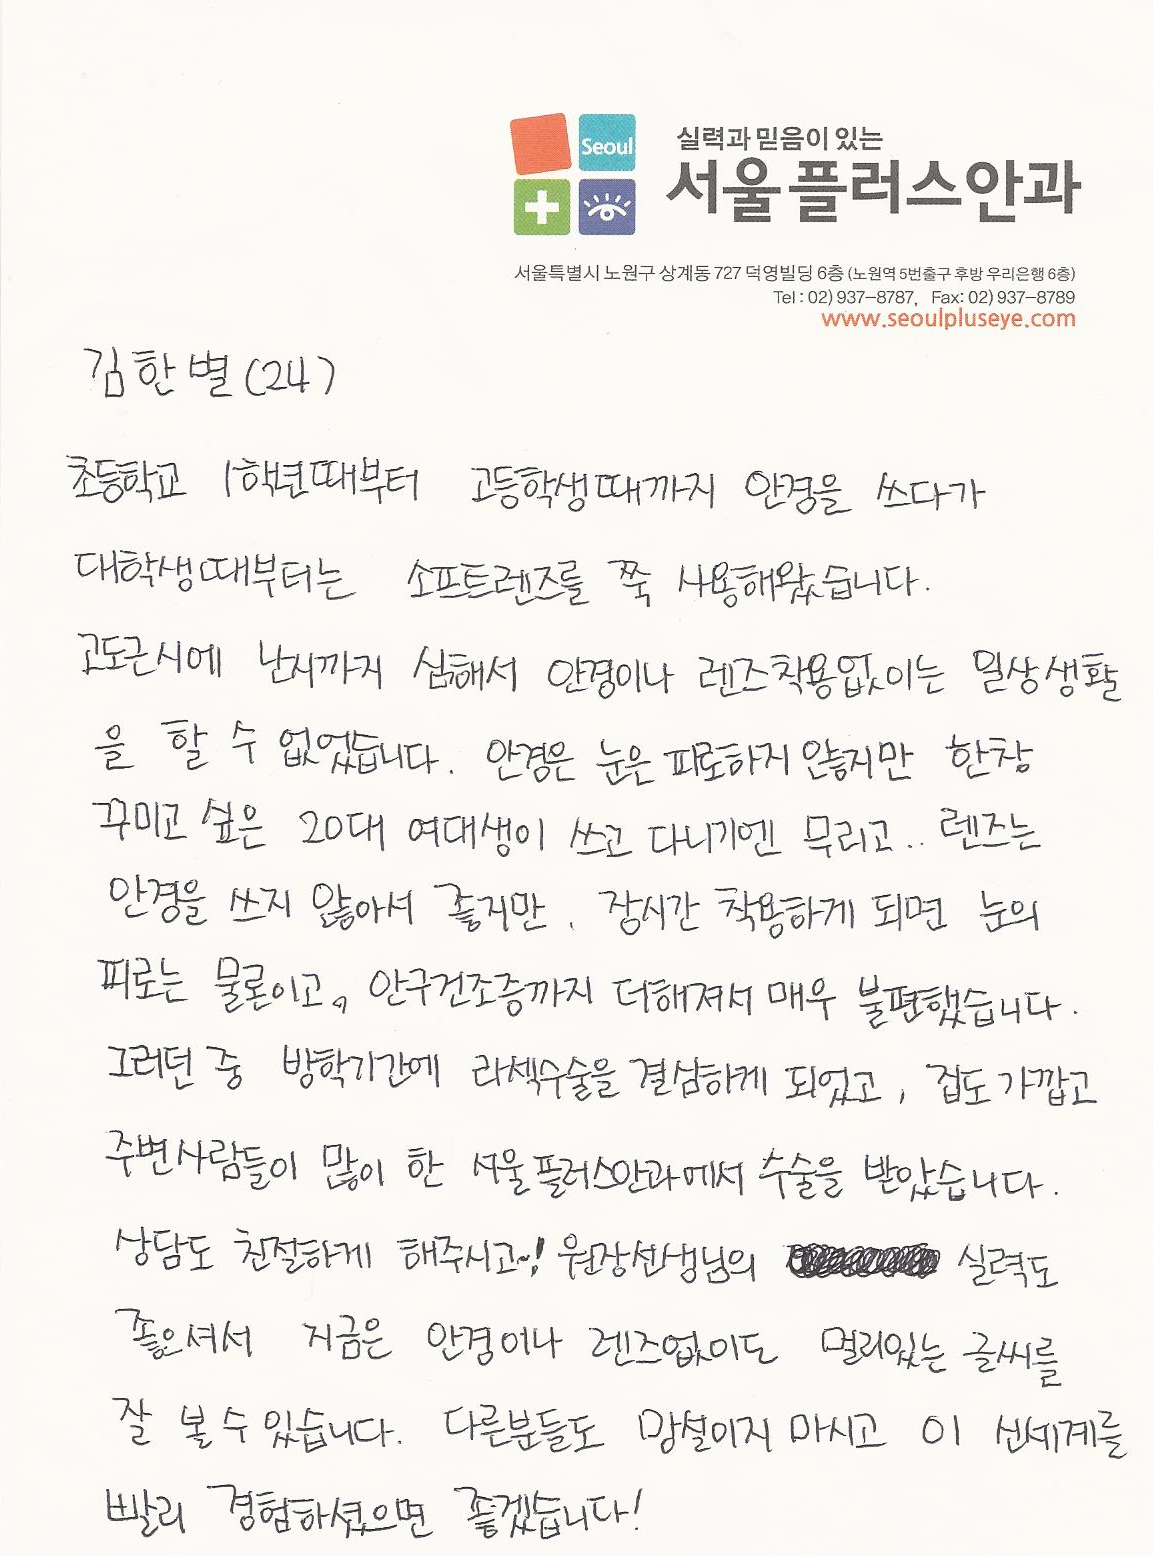 Seoul
실력과 믿음이 있는
서울플러스안과
서울특별시 노원구 상계동 727 덕영빌딩 6층 (노원역 5번출구 후방 우리은행 6층)
Tel : 02) 937-8787, Fax: 02) 937-8789
www.seoulpluseye.com
김한별(24)
초등학교 1학년때부터 고등학생때까지 안경을 쓰다가
대학생때부터는 소프트렌즈를 쭉 사용해왔습니다.
고도근시에 난시까지 심해서 안경이나 렌즈착용없이는 일상생활
을 할 수 없었습니다. 안경은 눈은 피로하지 않지만 한창
꾸미고 싶은 20대 여대생이 쓰고 다니기엔 무리고.. 렌즈는
안경을 쓰지 않아서 좋지만, 장시간 착용하게 되면 눈의
피로는 물론이고, 안구건조증까지 더해져서 매우 불편했습니다.
그러던 중 방학기간에 라섹수술을 결심하게 되었고, 집도 가깝고
주변사람들이 많이 한 서울플러스안과에서 수술을 받았습니다.
상담도 친절하게 해주시고~! 원장선생님의 실력도
좋으셔서 지금은 안경이나 렌즈없이도 멀리있는 글씨를
잘 볼 수 있습니다. 다른분들도 망설이지 마시고 이 신세계를
빨리 경험하셨으면 좋겠습니다!